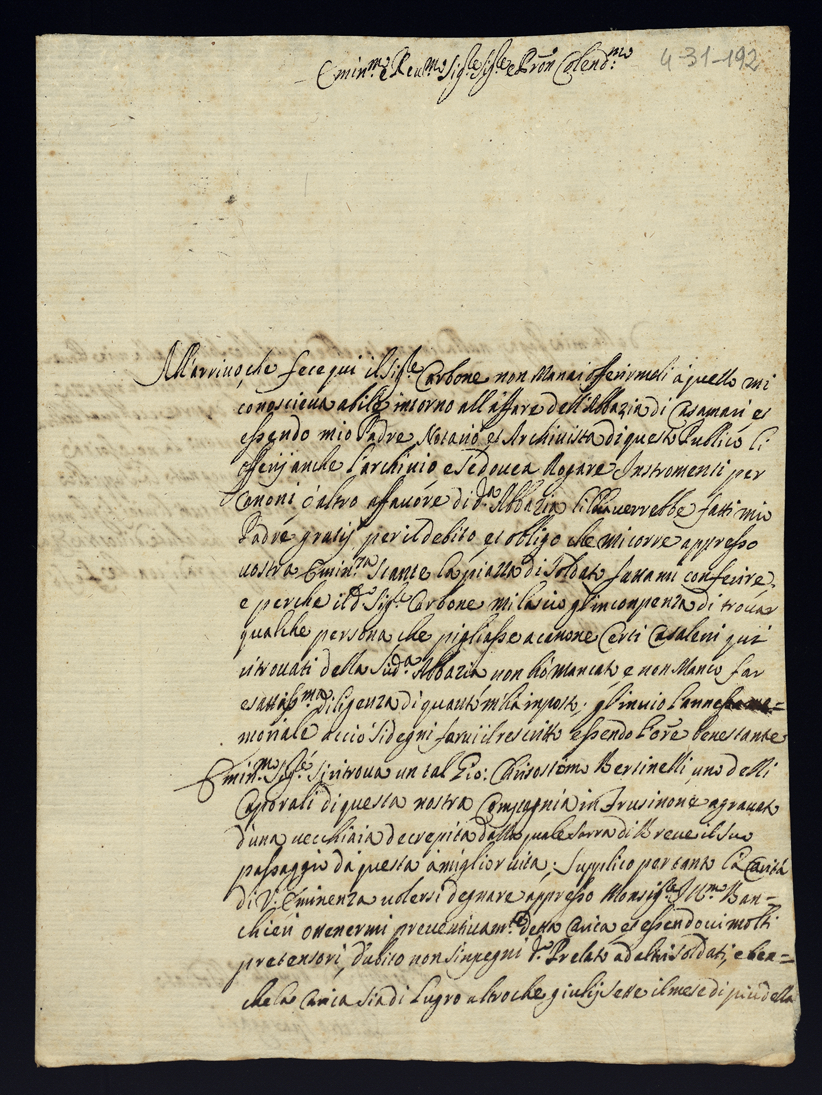 4-31-192
Emin.mo e Reu.mo Sig.le Sig.le e Pron Colend.mo
All'arriuo, che fece qui il Sig.le Carbone non Mancai offerirmeli à quello mi
conosceua abile intorno all'affare dell'Abbazia di Casamari et
essendo mio Padre Notario et Archiuista di questo Publico li
offerij anche l'archiuio e se doueua Rogare Instromenti per
Canoni ò altro affauore di d.a Abbazia li hauerrebbe fatti mio
Padre gratij per il debito et obligo che mi corre appresso
uostra Emin.za stante la piazza di Soldato fattami conferire,
e perche il d.o Sig.le Carbone mi lasciò gl'incompenza di trouar
qualche persona che pigliasse acenone Certi Casaleni qui
ritrouati della Sud.a Abbazia non hò Mancato e non Manco far
esattiss.ma diligenza di quanto m'hà imposto; gl'inuio l'annesso me=
moriale acciò si degni farui il rescritto essendo l'ore benestante
Emin.mo Sig.re Si ritroua un tal Gio: Chrisostomo Bersinelli uno delli
Caporali di questa nostra Compagnia in Frusinone agrauato
d'una uecchiaia decrepita dalla quale sarra di Breue il suo
passaggio da questa à miglior uita; Supplico per tanto la Carità
di V. Eminenza uolersi degnare appresso Monsig.le Ill.mo Ban=
chieri ottenermi preuentiuam.te detta Carica et essendoui molti
pretensori, dubito non s'inpegni d.o Prelato ad altri soldati, e ben=
che la Carica sia di lugro altro che giulij sette il mese di più della